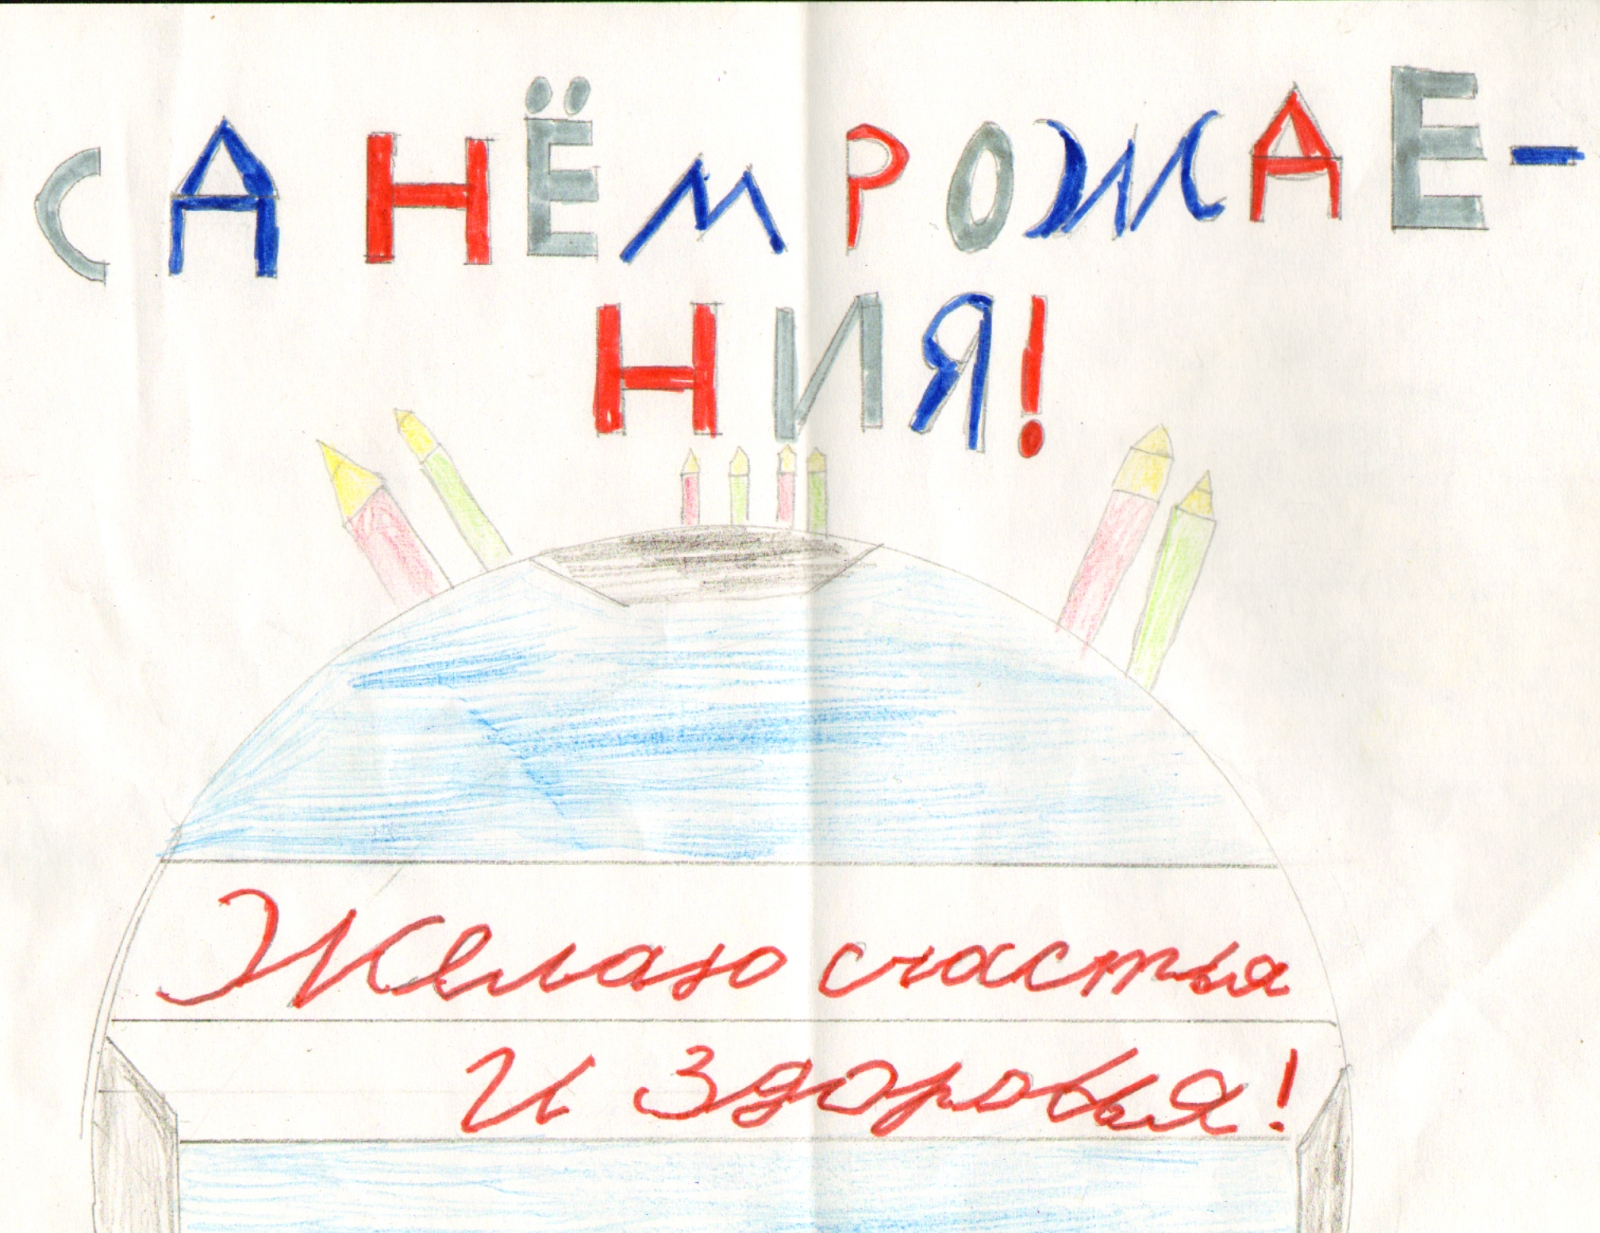 С ДНЁМ РОЖДЕ-
НИЯ!
Желаю счастья
и здоровья!